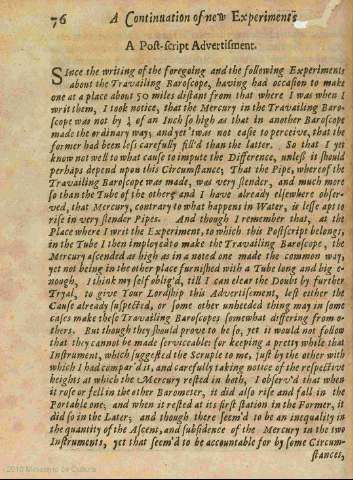 76 A Continuation of new Experiments
A Post-script Advertisment.
SInce the writing of the foregoing and the following Experiments
about the Travailing Baroscope, having had occasion to make
one at a place about 50 miles distant from that where I was when I
writ them, I took notice, that the Mercury in the Travailing Baro-
scope was not by ¼ of an Inch so high as that in another Baroscope
made the ordinary way; and yet 'twas not easie to perceive, that the
former had been less carefully fill'd than the latter. So that I yet
know not well to what cause to impute the Difference, unless it should
perhaps depend upon this Circumstance; That the Pipe, whereof the
Travailing Baroscope was made, was very slender, and much more
so than the Tube of the other; and I have already elsewhere obser-
ved, that Mercury, contrary to what happens in Water, is less apt to
rise in very slender Pipes. And though I remember that, at the
Place where I writ the Experiment, to which this Postscript belongs,
in the Tube I then imployed to make the Travailing Baroscope, the
Mercury ascended as high as in a noted one made the common way,
yet not being in the other place furnished with a Tube long and big e-
nough, I think my self oblig'd, till I can clear the Doubt by further
Tryal, to give Your Lordship this Advertisement, lest either the
Cause already suspected, or some other unheeded thing may in some
cases make these Travailing Baroscopes somewhat differing from o-
thers. But though they should prove to be so, yet it would not follow
that they cannot be made serviceable: for keeping a pretty while that
Instrument, which suggested the Scruple to me, just by the other with
which I had compar'd it, and carefully taking notice of the respective
heights at which the Mercury rested in both, I observ'd that when
it rose or fell in the other Barometer, it did also rise and fall in the
Portable one; and when it rested at its first station in the Former, it
did so in the Later; and though there seem'd to be an inequality in
the quantity of the Ascent, and subsidence of the Mercury in the two
Instruments, yet that seem'd to be accountable for by some Circum-
stances,
© 2010 Ministerio de Cultura